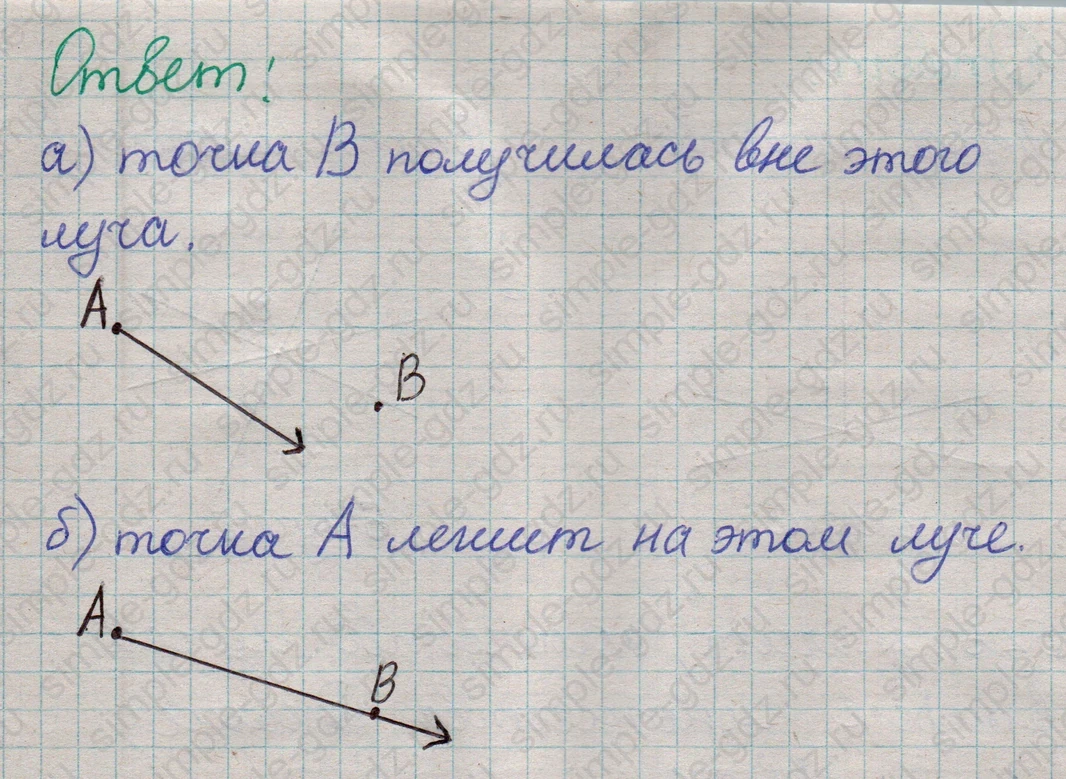 Ответ:
а) точка В получилась вне этого
луча.
А
В
б) точка А лежит на этом луче.
А
В
simple-gdz.ru